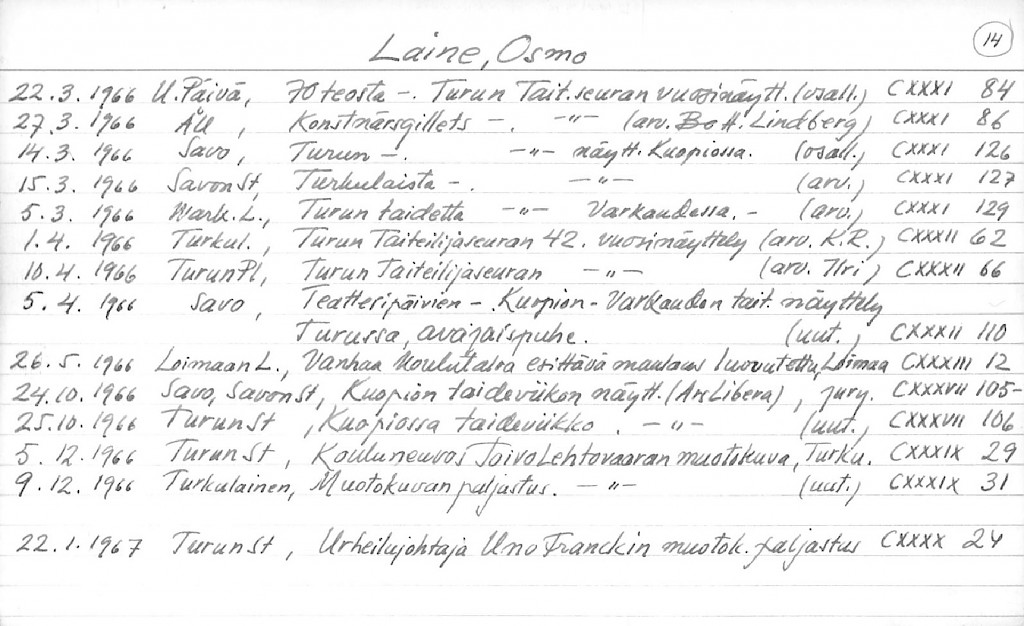 14
Laine, Osmo
22.3.1966 U.Päivä, 70 teosta -. Turun Tait.seuran vuosinäytt. (osall.) CXXXI 84
27.3.1966 ÅU, Konstnärsgillets -. -"- (arv. Bo H. Lindberg) CXXXI 86
14.3.1966 Savo, Turun -. -"- näytt. Kuopiossa. (osall.) CXXXI 126
15.3.1966 Savon St, Turkulaista -. -"- (arv.) CXXXI 127
5.3.1966 Wark.L., Turun taidetta -"- Varkaudessa. - (arv.) CXXXI 129
1.4.1966 Turkul., Turun Taiteilijaseuran 42. vuosinäyttely (arv. K.R.) CXXXII 62
10.4.1966 Turun Pl, Turun Taiteilijaseuran -"- (arv. Ilri) CXXXII 66
5.4.1966 Savo, Teatteripäivien -. Kuopion - Varkauden tait. näyttely
Turussa, avajaispuhe. (uut.) CXXXII 110
26.5.1966 Loimaan L., Vanhaa koulutaloa esittävä maalaus luovutettu, Loimaa CXXXIII 12
24.10.1966 Savo, Savon St, Kuopion taideviikon näytt. (Ars Libera), jury. CXXXVII 105-
25.10.1966 Turun St, Kuopiossa taideviikko. -"- (uut.) CXXXVII 106
5.12.1966 Turun St, Kouluneuvos Toivo Lehtovaaran muotokuva, Turku. CXXXIX 29
9.12.1966 Turkulainen, Muotokuvan paljastus. -"- (uut.) CXXXIX 31
22.1.1967 Turun St, Urheilujohtaja Uno Franckin muotok. paljastus CXXXX 24